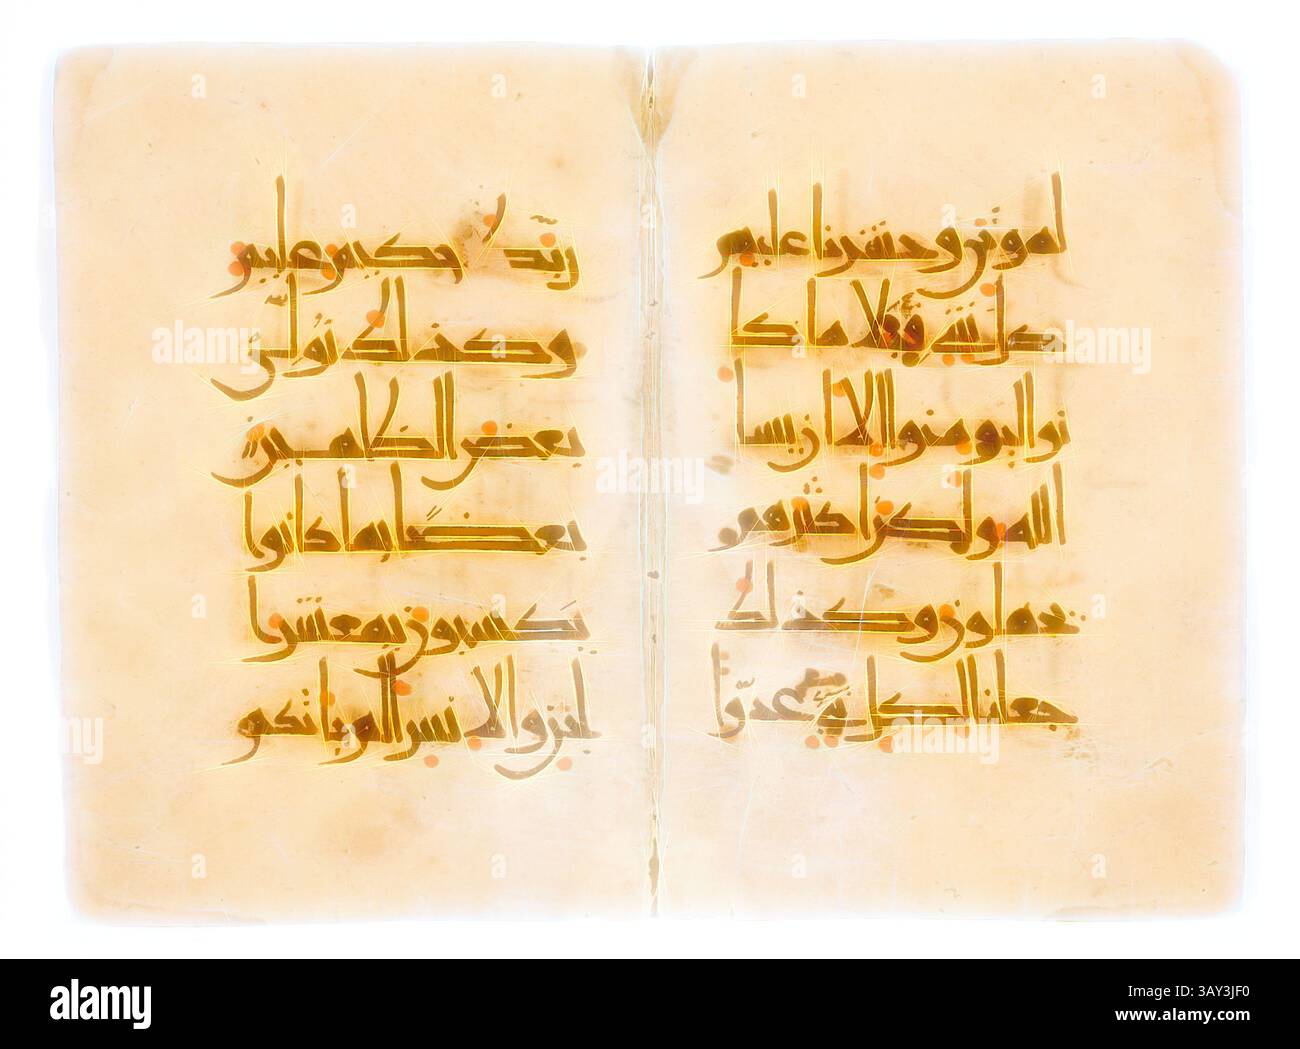 لموتى وحشرنا عليهم
كل شى قبلا ما كا
نوا ليومنوا الا ان يشا
الله ولكن اكثرهم
يجهلون وكذلك
جعلنا لكل نبى عدوا
ربك حكيم عليم
وكذلك نولى
بعض الظلمين
بعضا بما كانوا
يكسبون يمعشر ا
لجن والانس الم ياتكم
alamy
Image ID: 3AY3JF0
www.alamy.com